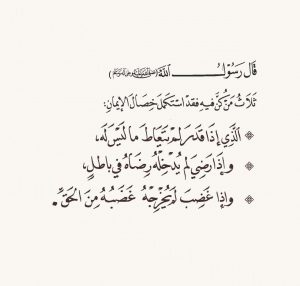 قَالَ رَسُولُ اللَّهِ (صَلَّى اللَّهُ عَلَيْهِ وَآلِهِ وَسَلَّمَ)
ثَلَاثٌ مَنْ كُنَّ فِيهِ فَقَدِ اسْتَكْمَلَ خِصَالَ الإِيمَانِ:
الَّذِي إِذَا قَدَرَ لَمْ يَتَعَاطَ مَا لَيْسَ لَهُ،
وإِذَا رَضِيَ لَمْ يُدْخِلْهُ رِضَاهُ فِي بَاطِلٍ،
وإِذَا غَضِبَ لَمْ يُخْرِجْهُ غَضَبُهُ مِنَ الْحَقِّ.